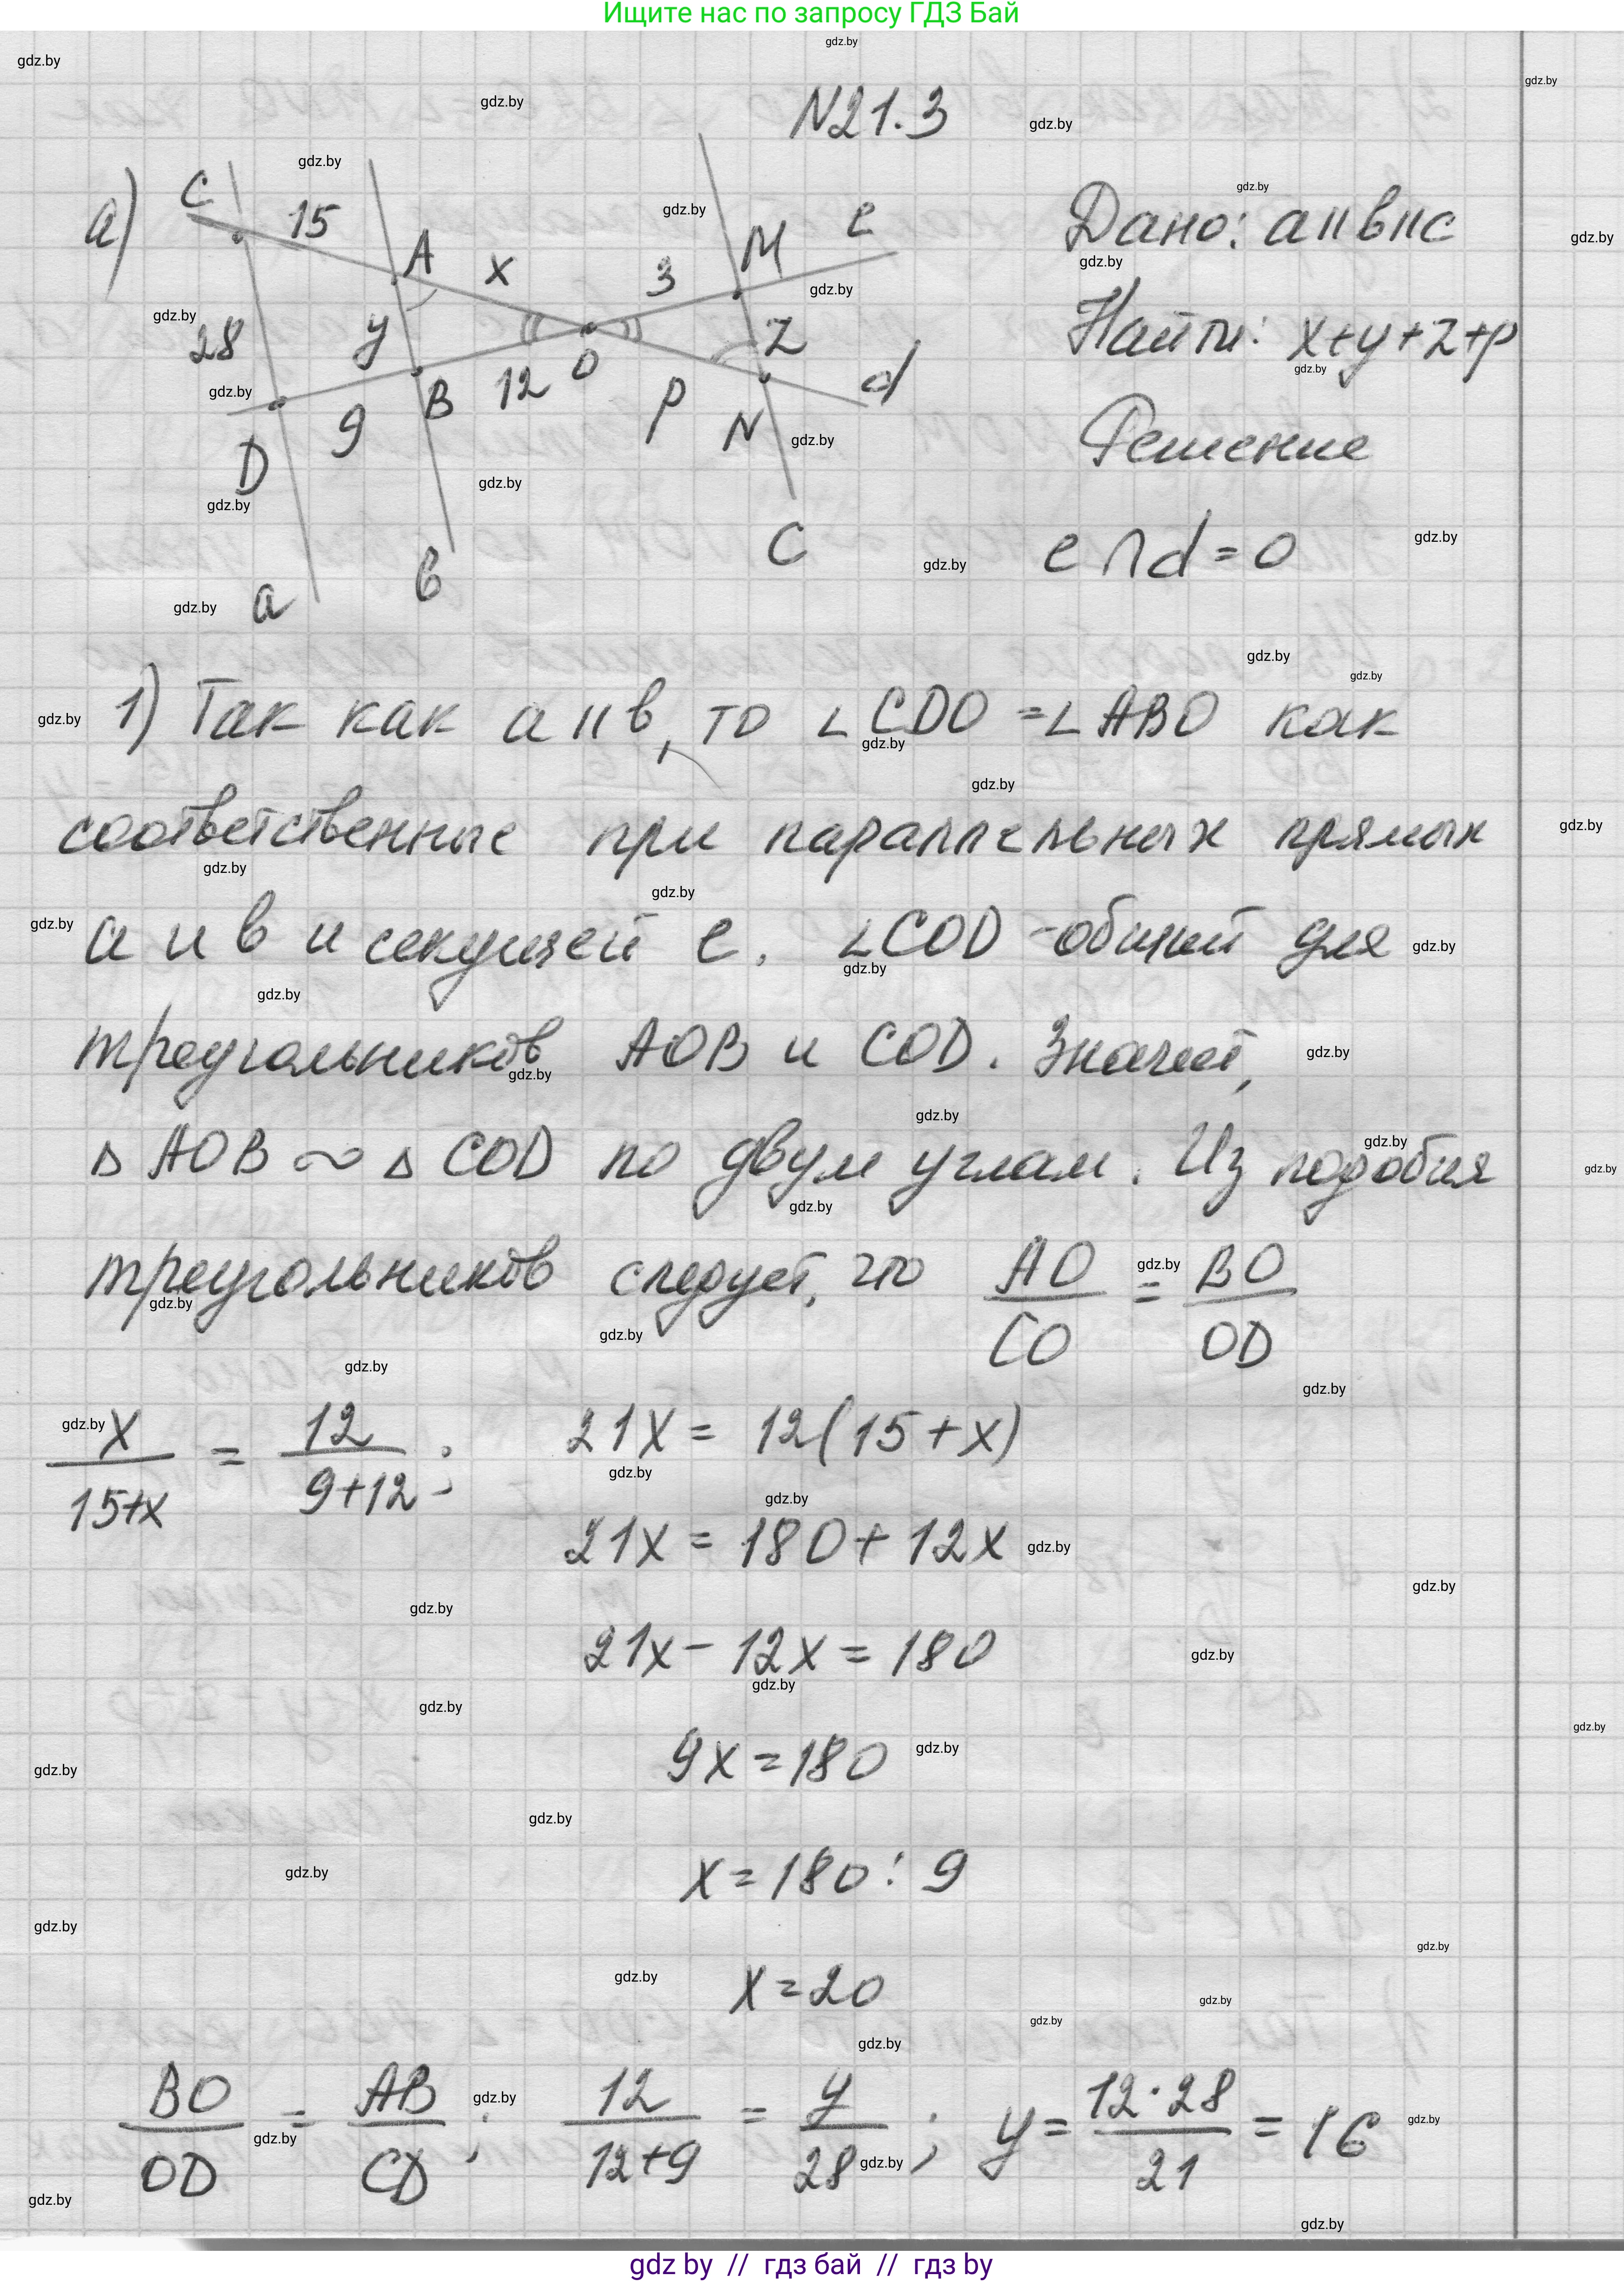 Ищите нас по запросу ГДЗ Бай
N21.3
а)
C
15
A
x
3
M
e
28
y
O
Z
d
D
9
B
12
p
N
a
в
C
Дано: a||в||c
Найти: x+y+z+p
Решение
e∩d=0
1) Так как a||в, то ∠CDO=∠ABO как
соответственные при параллельных прямых
a и в и секущей e. ∠COD - общий для
треугольников AOB и COD. Значит,
△AOB ∾ △COD по двум углам. Из подобия
треугольников следует, что AO/CO = BO/OD
x/15+x = 12/9+12; 21x = 12(15+x)
21x = 180+12x
21x-12x=180
9x=180
x=180:9
x=20
BO/OD = AB/CD; 12/12+9 = y/28; y=12·28/21=16
gdz by // гдз бай // гдз by